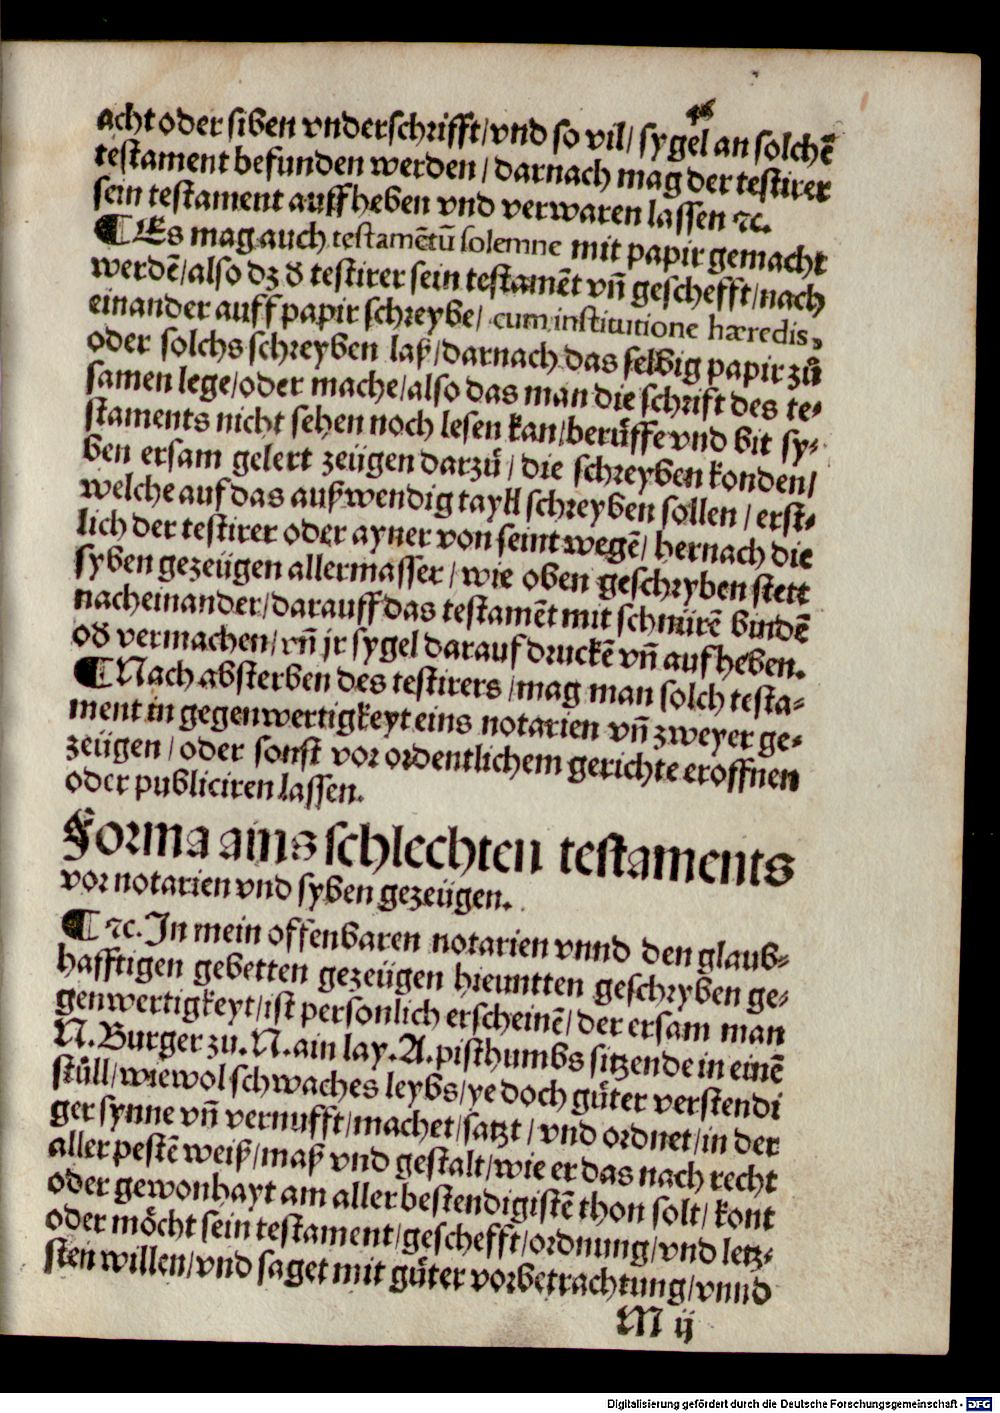 46
acht oder siben vnderschrifft/vnd so vil/ sygel an solchē
testament befunden werden/ darnach mag der testirer
sein testament auffheben vnd verwaren lassen ⁊c.
¶ Es mag auch testamētū solemne mit papir gemacht
werdē/also dz d̕ testirer sein testamēt vn̄ geschefft/nach
einander auff papir schreybe/ cum institutione hæredis,
oder solchs schreyben laß/darnach das selbig papir zů
samen lege/oder mache/also das man die schrift des te⸗
staments nicht sehen noch lesen kan/berůffe vnd bit sy⸗
ben ersam gelert zeügen darzů/ die schreyben konden/
welche auf das außwendig tayll schreyben sollen/ erst⸗
lich der testirer oder ayner von seint wegē/ hernach die
syben gezeügen allermasser/ wie oben geschryben stett
nacheinander/darauff das testamēt mit schnürē bindē
od̕ vermachen/vn̄ jr sygel darauf druckē vn̄ aufheben.
¶ Nach absterben des testirers/mag man solch testa⸗
ment in gegenwertigkeyt eins notarien vn̄ zweyer ge⸗
zeügen/ oder sonst vor ordentlichem gerichte eroffnen
oder publiciren lassen.
Forma ains schlechten testaments
vor notarien vnd syben gezeügen.
¶ ⁊c. In mein offenbaren notarien vnnd den glaub⸗
hafftigen gebetten gezeügen hieuntten geschryben ge⸗
genwertigkeyt/ist personlich erscheinē/ der ersam man
N. Burger zu. N. ain lay. A. pisthumbs sitzende in einē
stůll/wiewol schwaches leybs/ye doch gůter verstendi
ger synne vn̄ vernufft/machet/satzt/ vnd ordnet/in der
aller pestē weiß/maß vnd gestalt/wie er das nach recht
oder gewonhayt am aller bestendigistē thon solt/ kont
oder möcht sein testament/geschefft/ordnung/vnd letz⸗
sten willen/vnd saget mit gůter vorbetrachtung/vnnd
M ij
Digitalisierung gefördert durch die Deutsche Forschungsgemeinschaft - DFG